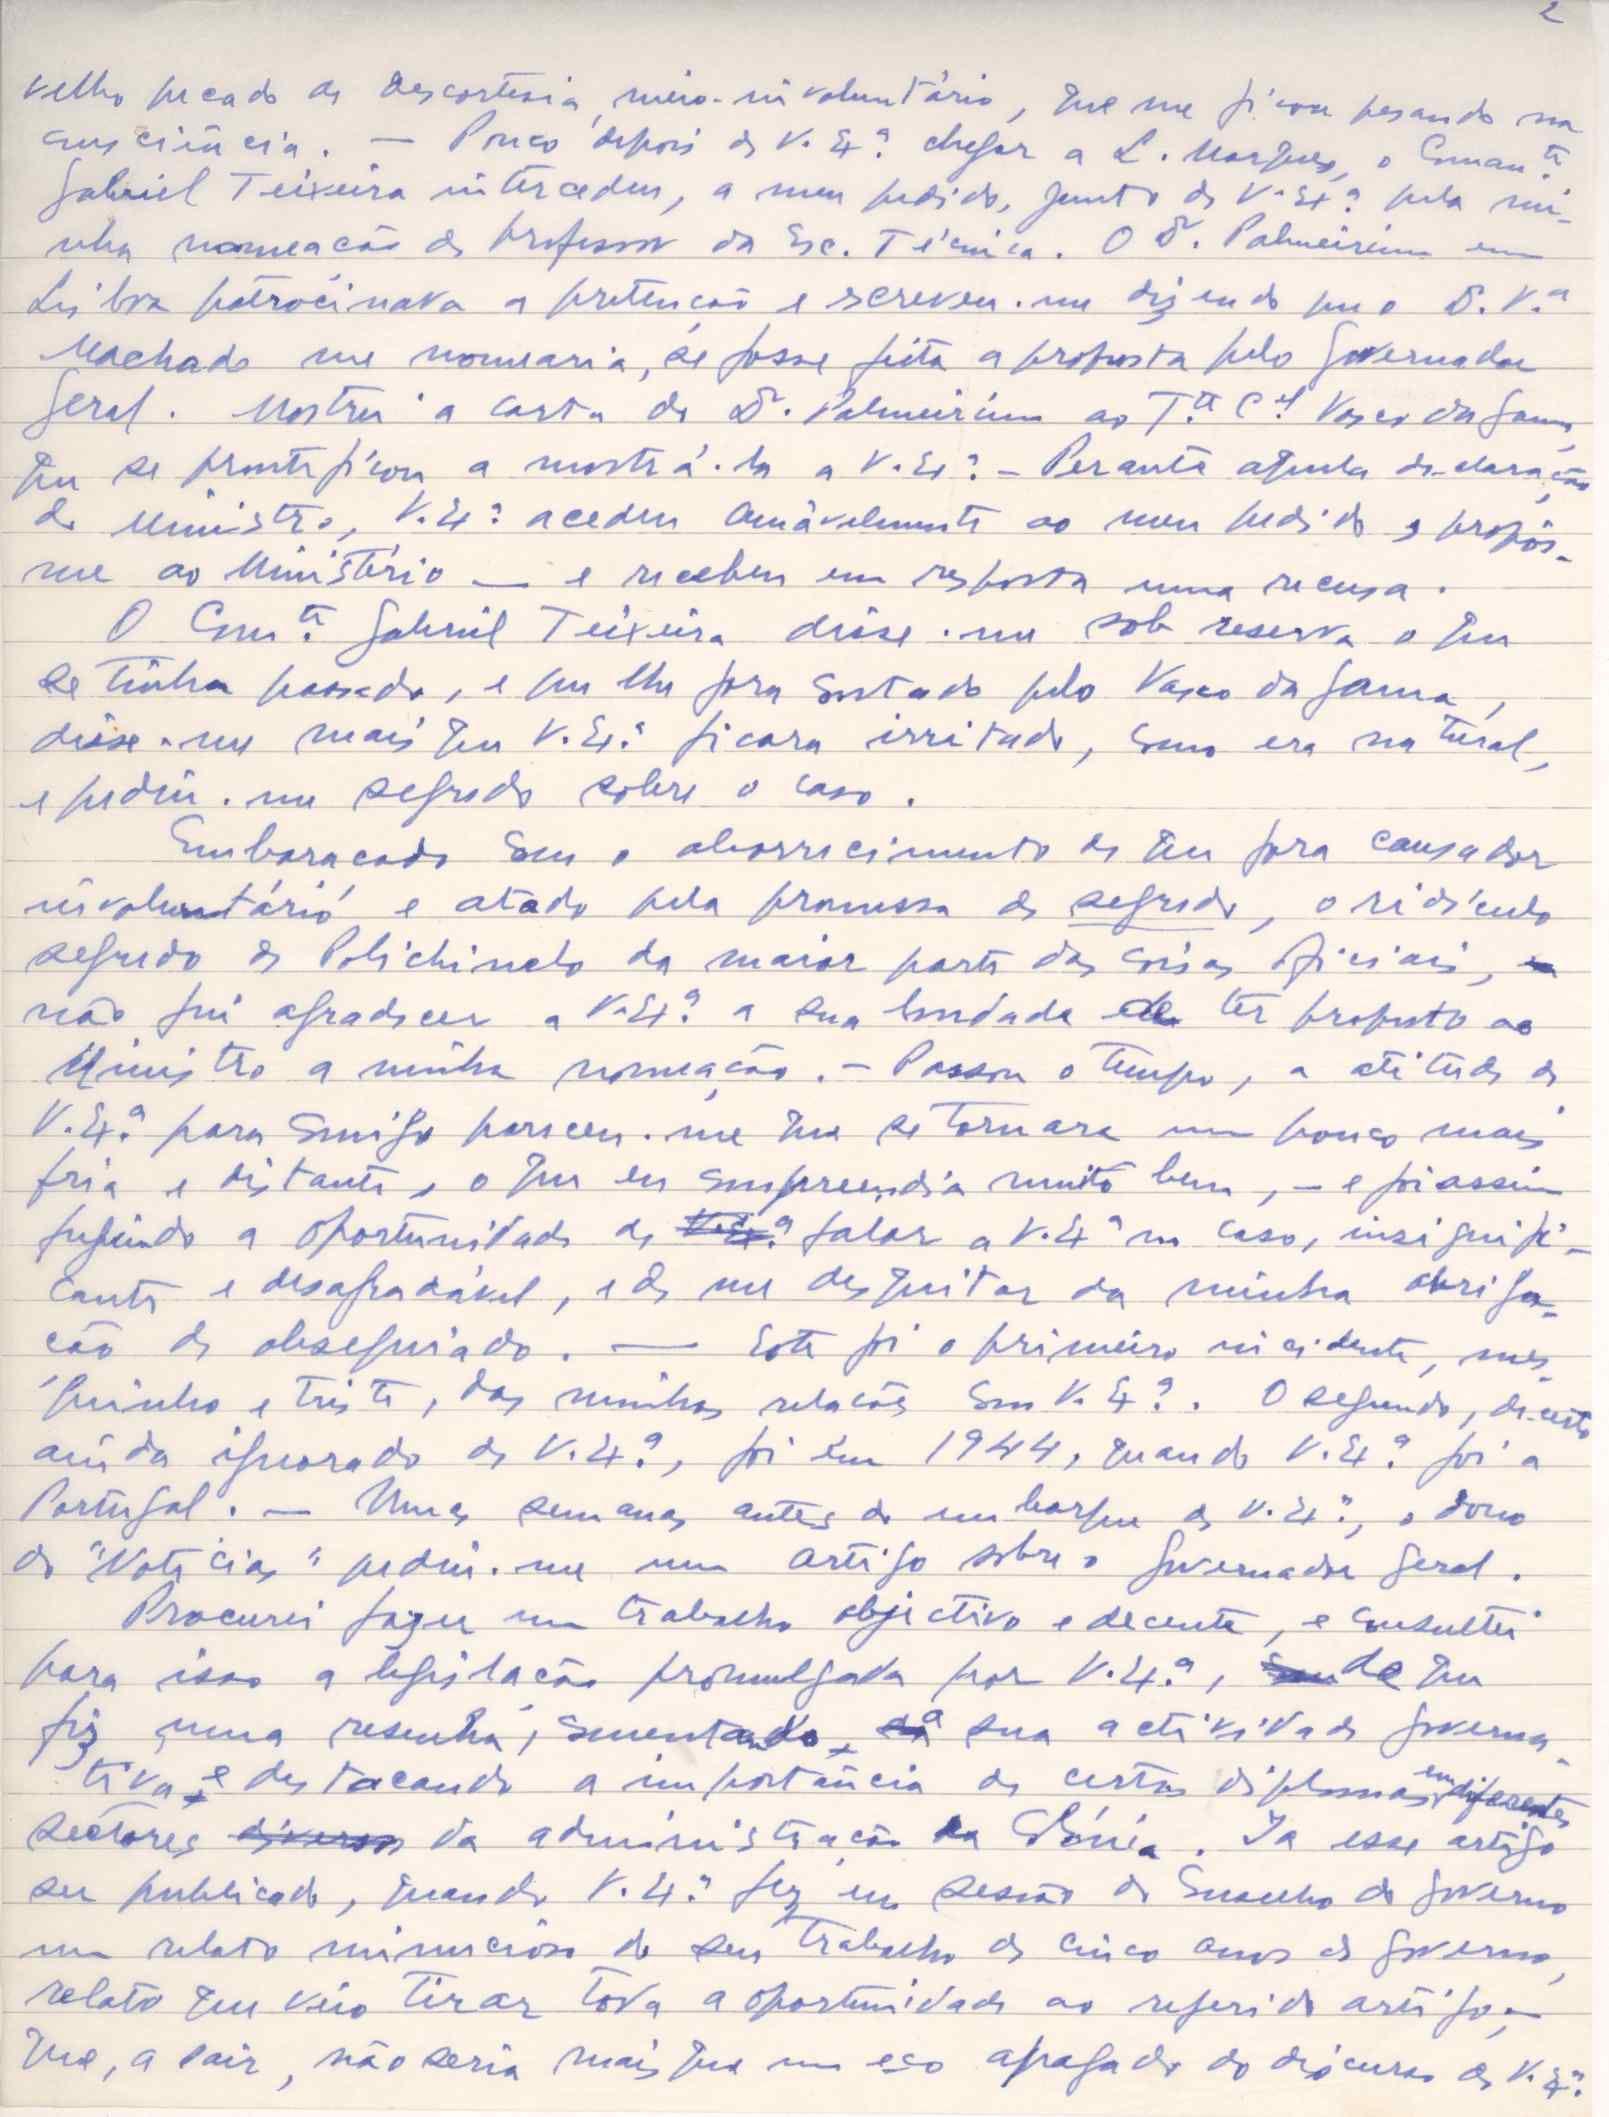 2
velho pecado de descortesia, meio-involuntário, que me ficou pesando na
consciência. — Pouco depois de V. Ex.ª chegar a L. Marques, o Coman.te
Gabriel Teixeira intercedeu, a meu pedido, junto de V. Ex.ª pela mi-
nha nomeação de professor da Esc. Técnica. O Dr. Palmeirim em
Lisboa patrocinava a pretenção e escreveu-me dizendo que o Dr. V.ª
Machado me nomearia, se fosse feita a proposta pelo Governador
Geral. Mostrei a carta do Dr. Palmeirim ao T.te C.el Vasco da Gama,
que se prontificou a mostrá-la a V. Ex.ª — Perante aquela declaração
do Ministro, V. Ex.ª acedeu amàvelmente ao meu pedido e propôs-
me ao Ministério — e recebeu em resposta uma recusa.
O Com.te Gabriel Teixeira disse-me sob reserva o que
se tinha passado, e que lhe fora contado pelo Vasco da Gama,
disse-me mais que V. Ex.ª ficara irritado, como era natural,
e pediu-me segredo sobre o caso.
Embaraçado com o aborrecimento de que fora causador
involuntário e atado pela promessa de segredo, o ridículo
segredo de Polichinelo da maior parte das coisas oficiais,
não fui agradecer a V. Ex.ª a sua bondade de ter proposto ao
Ministro a minha nomeação. — Passou o tempo, a atitude de
V. Ex.ª para comigo pareceu-me que se tornara um pouco mais
fria e distante, o que eu compreendia muito bem, — e foi assim
fugindo a oportunidade de V. Ex.ª falar a V. Ex.ª no caso, insignifi-
cante e desagradável, e de me desquitar da minha obriga-
ção de obsequiado. — Este foi o primeiro incidente, mes-
quinho e triste, das minhas relações com V. Ex.ª. O segundo, decerto
ainda ignorado de V. Ex.ª, foi em 1944, quando V. Ex.ª foi a
Portugal. — Umas semanas antes do embarque de V. Ex.ª, o dono
do "Notícias" pediu-me um artigo sobre o Governador Geral.
Procurei fazer um trabalho objectivo e decente, e consultei
para isso a legislação promulgada por V. Ex.ª, de que
fiz uma resenha, comentando a sua actividade governa-
tiva e destacando a importância de certos diplomas em diferentes
sectores diversos da administração da Colónia. Ia esse artigo
ser publicado, quando V. Ex.ª fez em sessão do Conselho do Governo
um relato minucioso do seu trabalho de cinco anos de governo,
relato que veio tirar toda a oportunidade ao referido artigo,
que, a sair, não seria mais que um eco apagado do discurso de V. Ex.ª